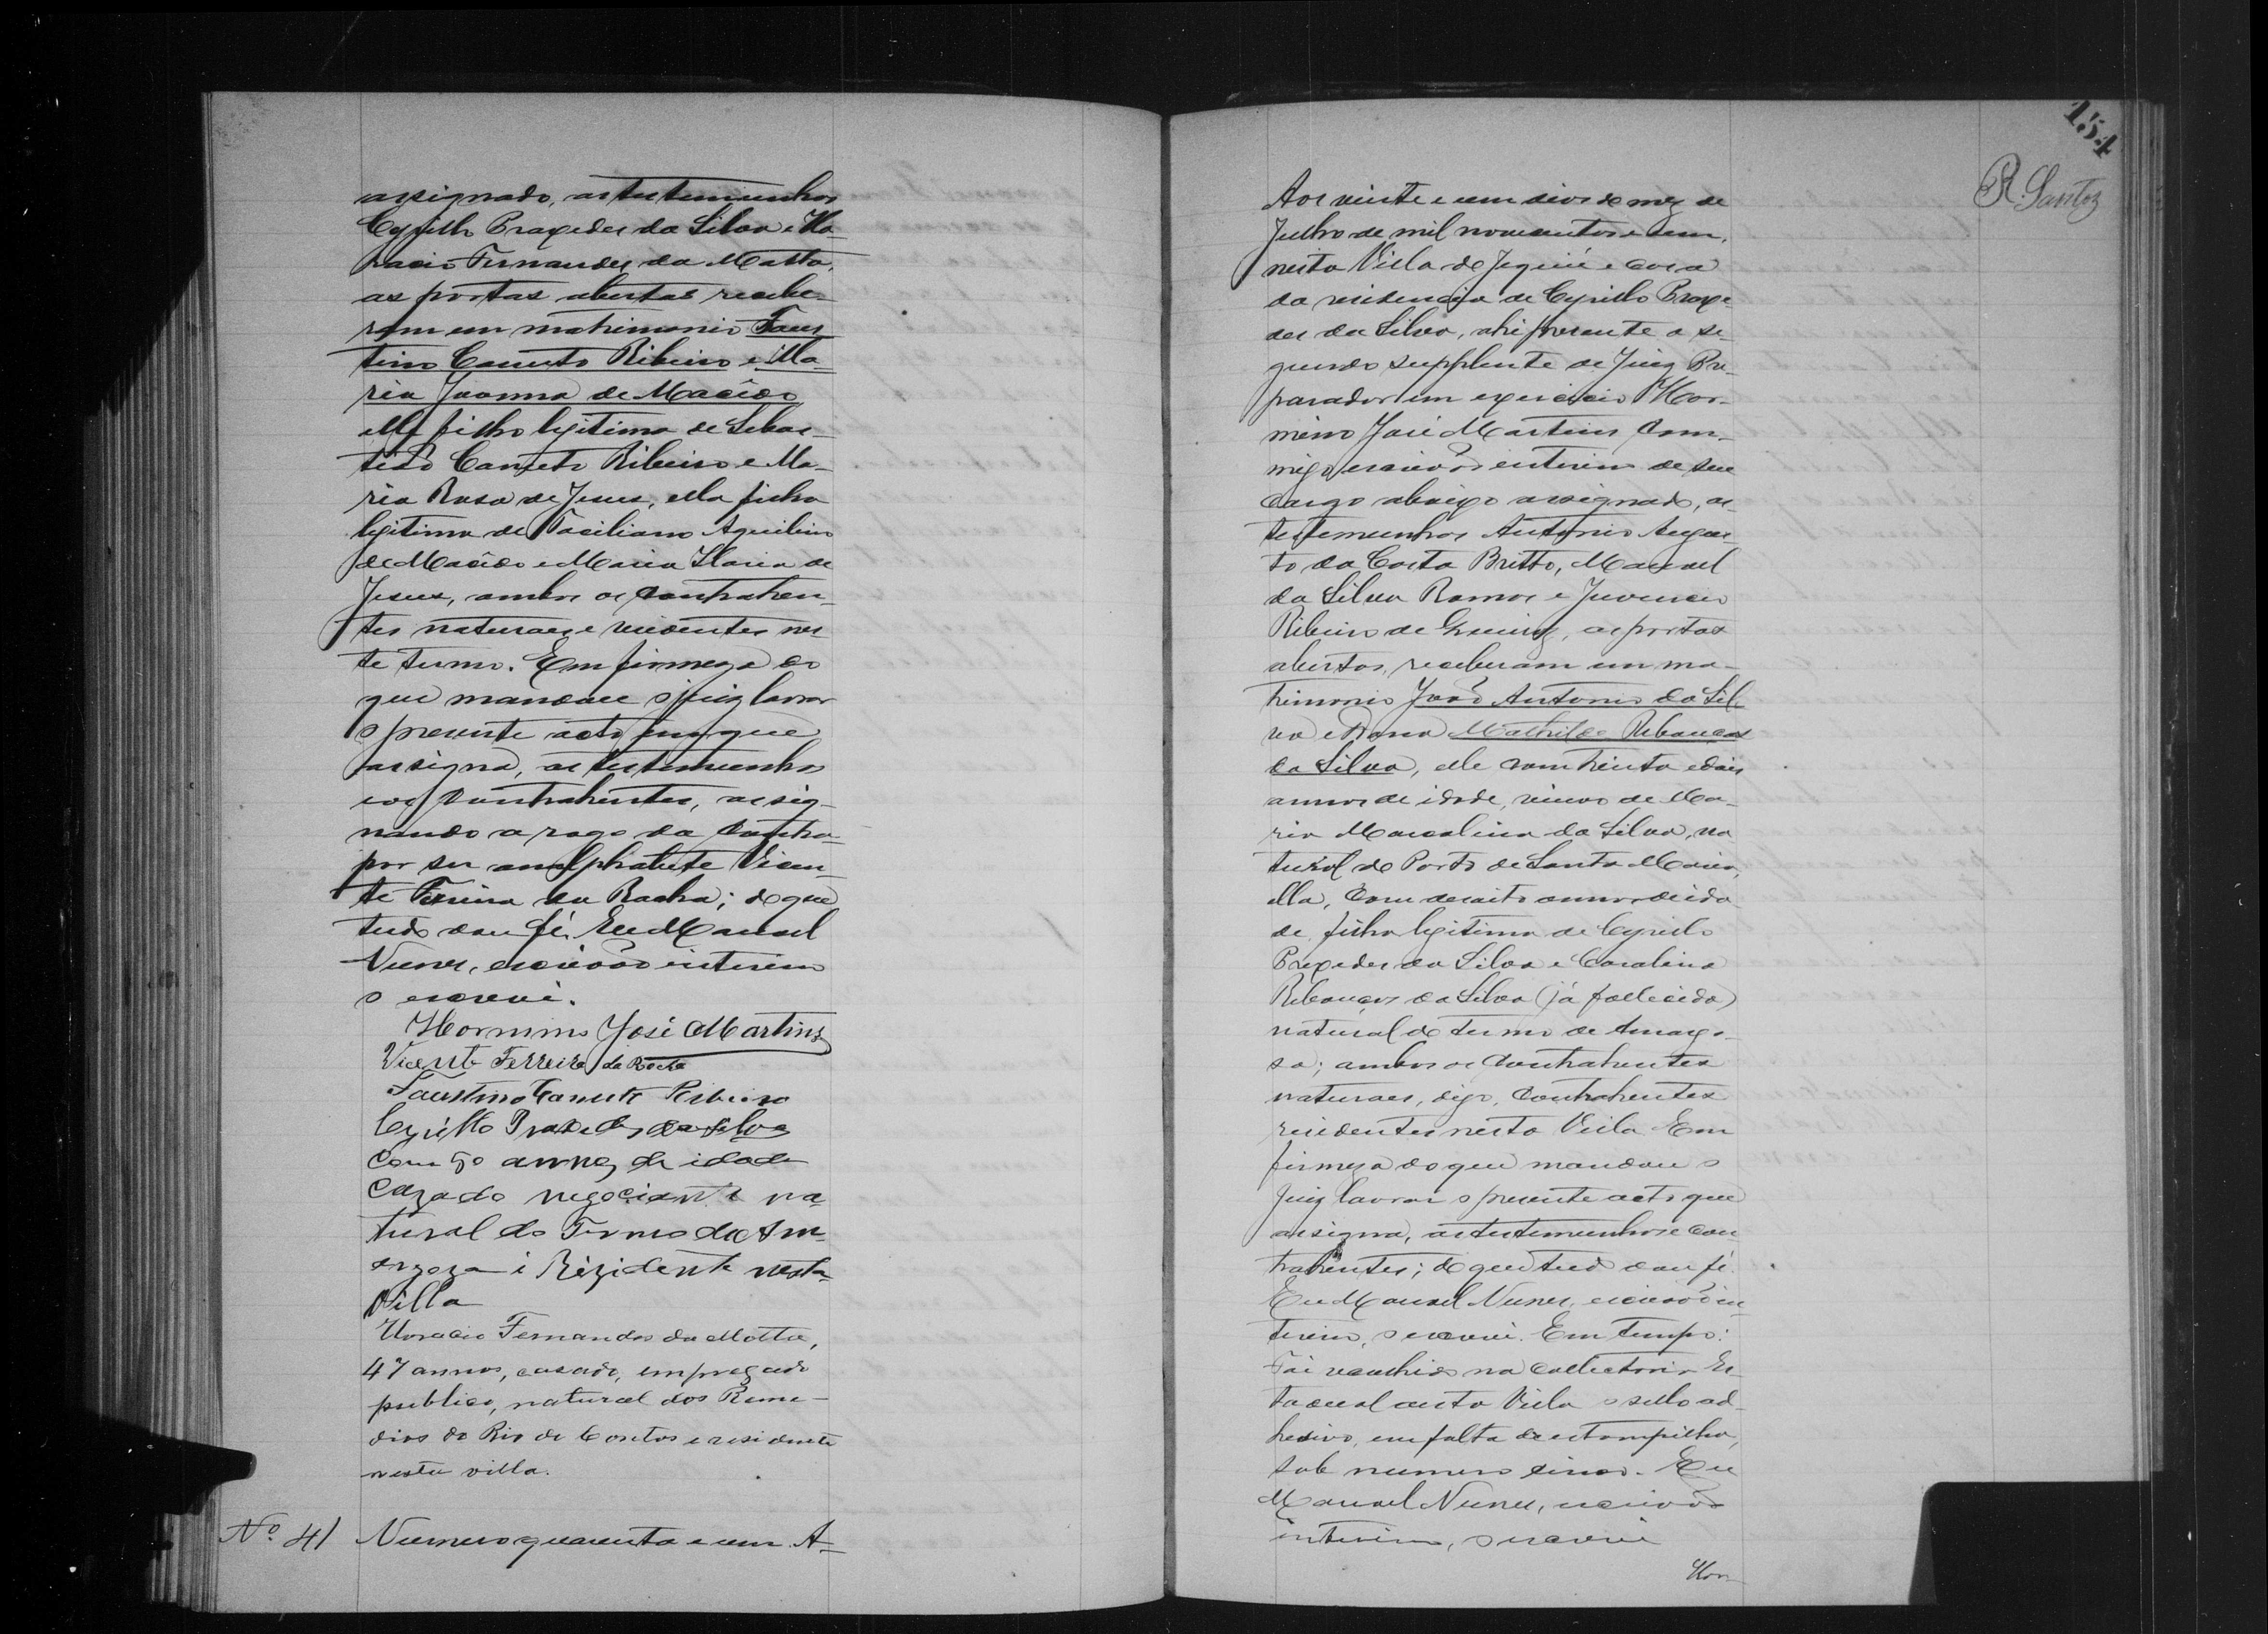 assignado, as testemunhas
Cyrillo Praxedes da Silva e Ho-
racio Fernandes da Motta,
as portas abertas recebe-
ram em matrimonio Faus
tino Canuto Ribeiro e Ma-
ria Joanna de Macêdo
elle filho legitimo de Sebas-
tião Canuto Ribeiro e Ma-
ria Rosa de Jesus, ella filha
legitima de Taciliano Aquilino
de Macêdo e Maria Ilaria de
Jesus, ambos os contrahen-
tes naturaes e residentes nes-
te termo. Em firmeza do
que mandou o juiz lavrar
o presente acto em que
assigna, as testemunhas
e os contrahentes, assig-
nando a rogo da contra-
por ser analphabete Vicen-
te Ferreira da Rocha; do que
tudo dou fé. Eu Manoel
Nunes, escrivão interino
o escrevi.
Hormino José Martins
Vicente Ferreira da Rocha
Faustino Canuto Ribeiro
Cyrillo Praxedes da Silva
Com 50 annos de idade
Cazado negociante na
tural do Termo de Am
argoza i Rezidente nesta
Villa
Horacio Fernandes da Motta,
47 annos, casado, empregado
publico, natural dos Reme-
dios do Rio de Contas e residente
nesta villa.
Nº 41 Numero quarenta e um. A-
154
R. Santos
Aos vinte e um dias do mez de
Julho de mil novecentos e um,
nesta Villa de Jequié e casa
da residencia de Cyrillo Praxe
des da Silva, ahi presente o se-
gundo supplente de Juiz Pre-
parador em exercicio Hor-
mino José Martins com-
migo escrivão interino de seu
cargo abaixo assignado, as
testemunhas Antonio Augus-
to da Costa Britto, Manoel
da Silva Ramos e Juvencio
Ribeiro de as portas
abertas, receberam em ma-
trimonio João Antonio da Sil-
va e Dona Mathilde Rebouças
da Silva, elle com trinta e dois
annos de idade, viuvo de Ma-
ria Marcolina da Silva, na
tural do Porto de Santa Maria,
ella, com desoito annos de ida
de, filha legitima de Cyrillo
Praxedes da Silva e Carolina
Rebouças da Silva (já fallecida)
natural do termo de Amargo-
sa; ambos os contrahentes
naturaes, digo, contrahentes
residentes nesta Villa. Em
firmeza do que mandou o
juiz lavrar o presente acto que
assigna, as testemunhas e con
trahentes; do que tudo dou fé.
Eu Manoel Nunes, escrivão in-
terino, o escrevi. Em tempo:
Foi recolhido na Collectoria Es-
tadual desta Villa o sello ad-
hesivo, em falta de estampilha,
sob numero cinco. Eu
Manoel Nunes, escrivão
interino, o escrevi
Hor-